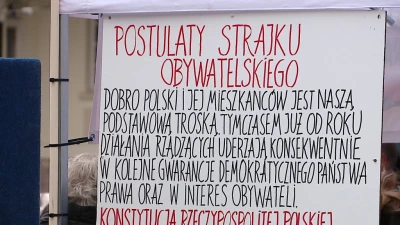 POSTULATY STRAJKU
OBYWATELSKIEGO
DOBRO POLSKI I JEJ MIESZKAŃCÓW JEST NASZĄ
PODSTAWOWĄ TROSKĄ. TYMCZASEM JUŻ OD ROKU
DZIAŁANIA RZĄDZĄCYCH UDERZAJĄ KONSEKWENTNIE
W KOLEJNE GWARANCJE DEMOKRATYCZNEGO PAŃSTWA
PRAWA ORAZ W INTERES OBYWATELI.
KONSTYTUCJA RZECZYPOSPOLITEJ POLSKIEJ